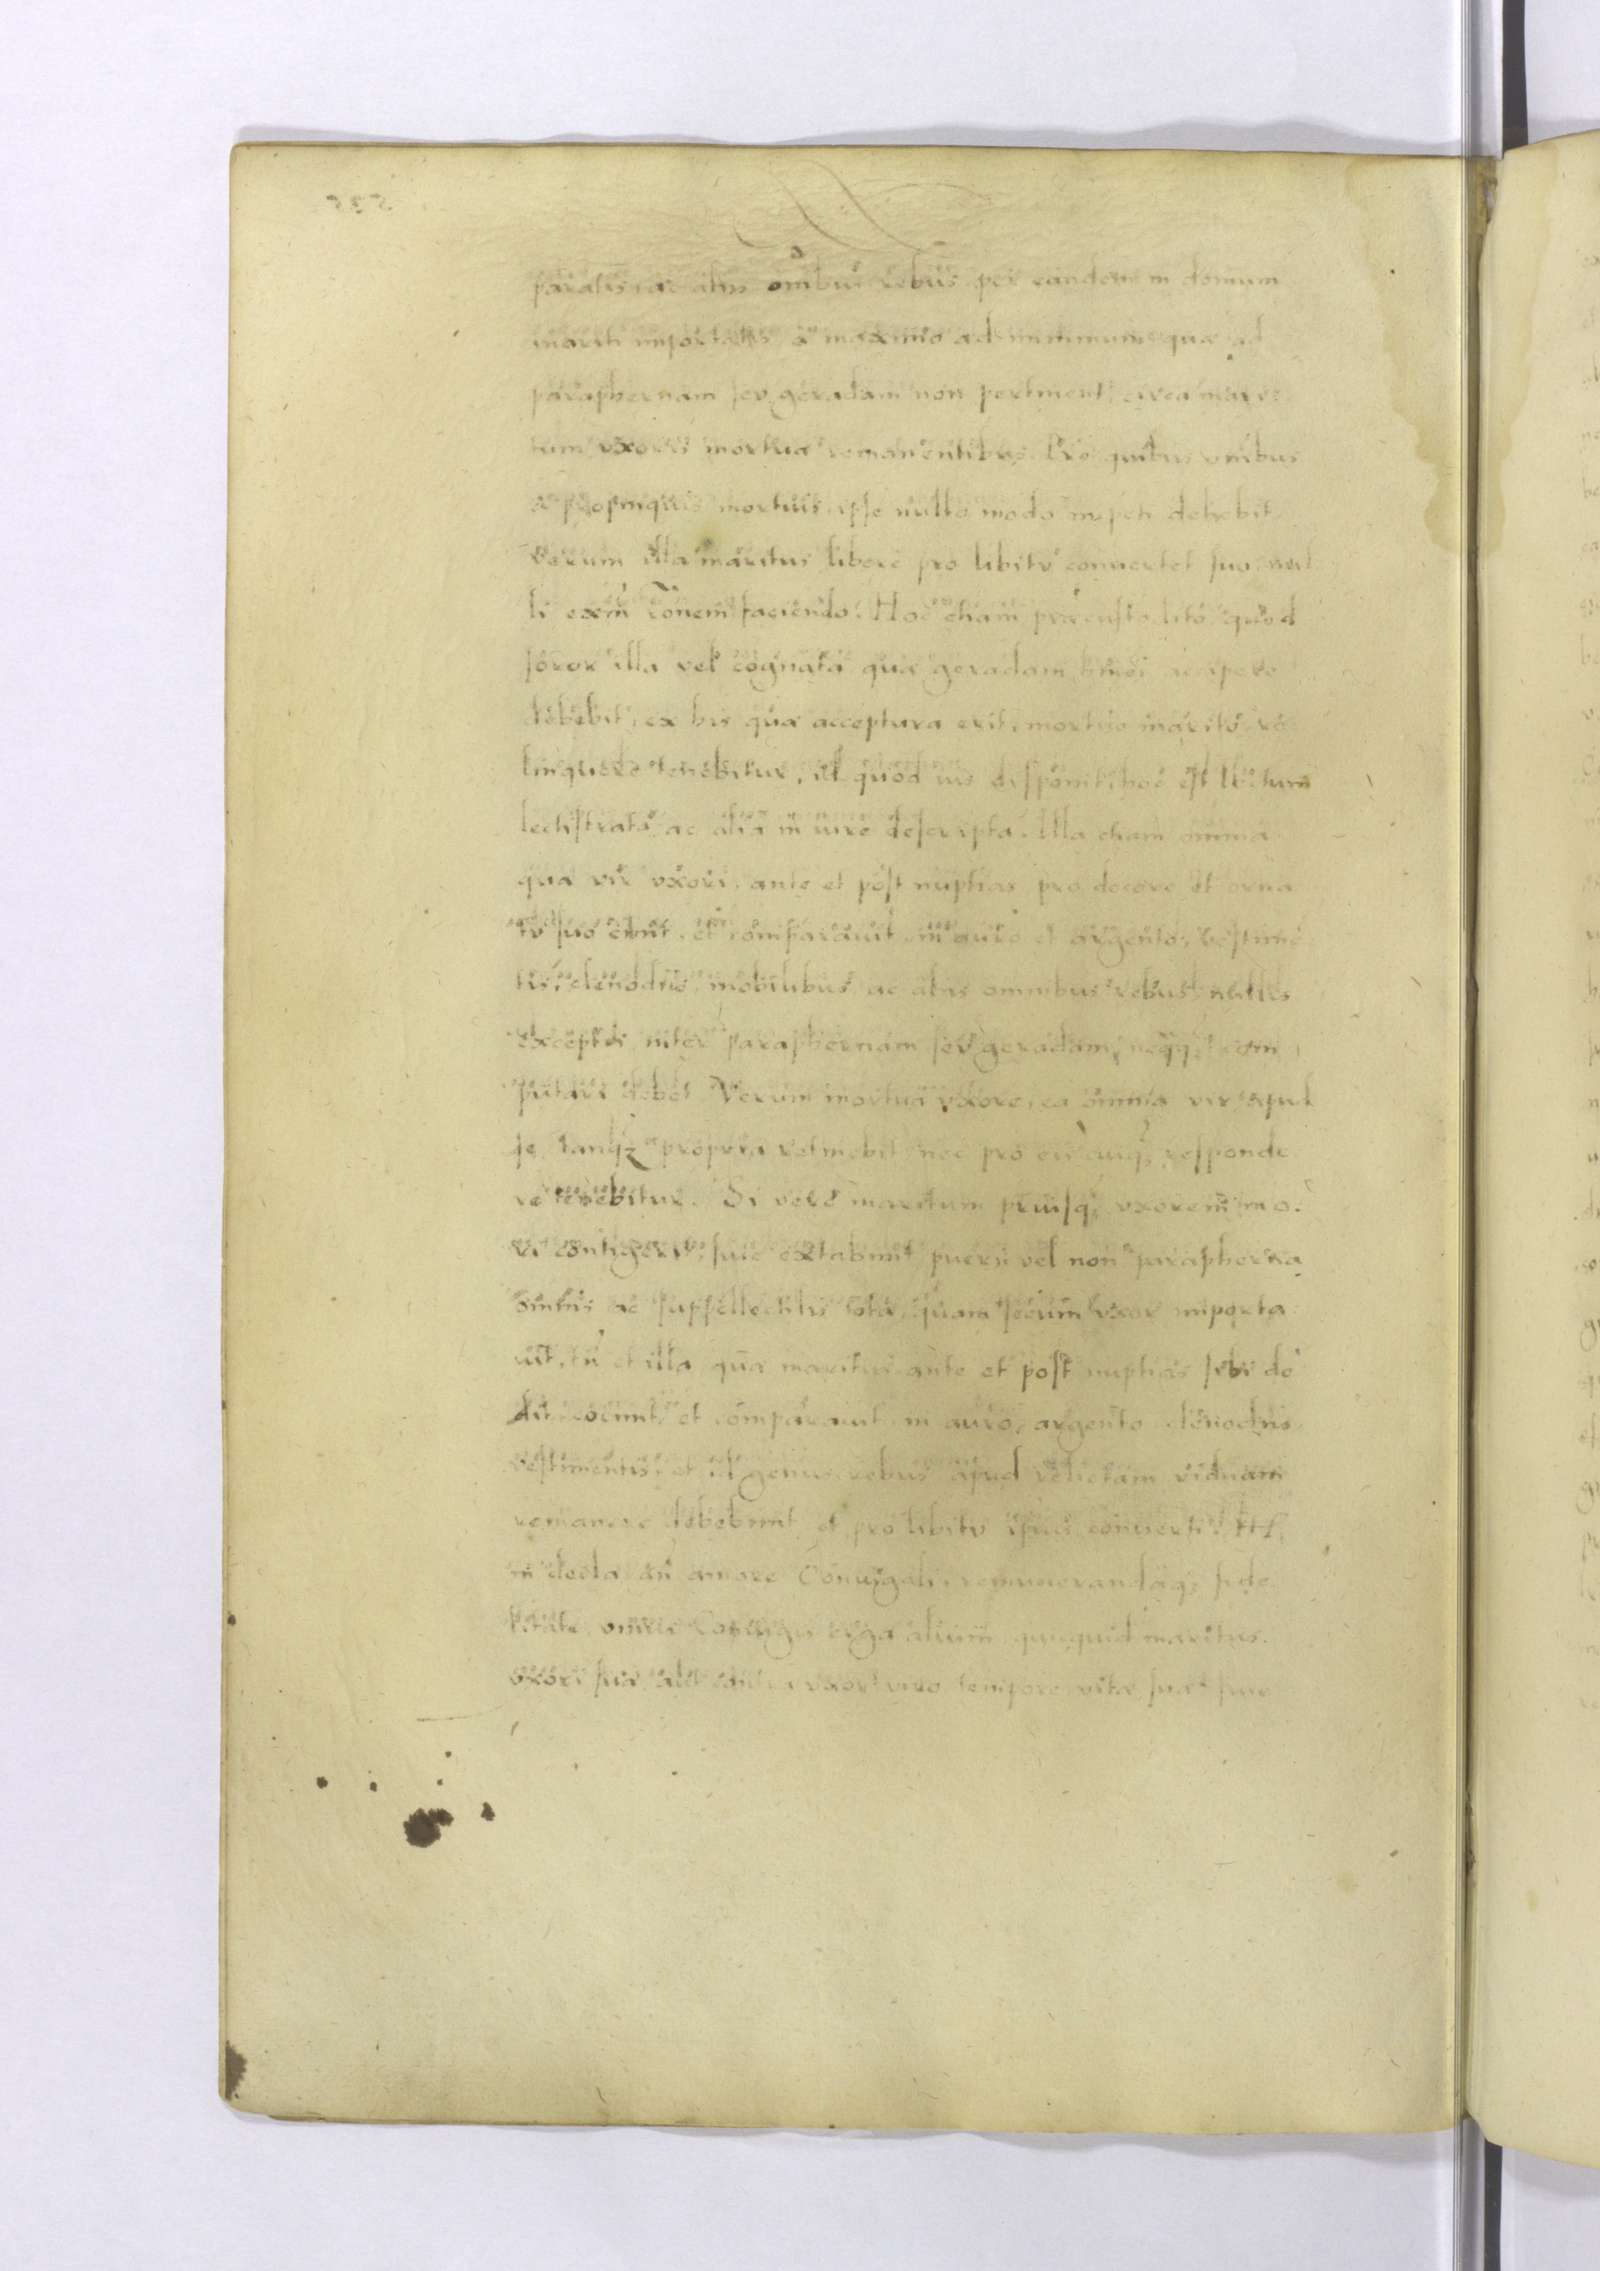 paratis, ac aliis om̄ibus rebus per eandem in domum
mariti importatis a maximo ad minimum quæ ad
paraphernam seu geradam non pertinent, circa mari
tum uxore mortua remanentibus. Pro quibus om̄ibus
a propinquis mortuis, ipse nullo modo impeti debebit
Verum illa maritus libere pro libitu convertet suo, nul
li exīn rōnem faciendo. Hoc etiam præcustodito, quod
soror illa vel cognata quæ geradam accipere
debebit, ex his quæ acceptura erit, mortuo marito, re
linquere tenebitur, id quod ius disponit, hoc est lectum
lectistrata ac alia in iure descripta. Illa etiam omnia
quæ vir uxori, ante et post nuptias pro decore et orna
tu suo emit, et comparavit, in auro et argento, vestimē
tis, clenodiis, mobilibus, ac aliis omnibus rebus, nullis
exceptis, inter paraphernam seu geradam, com
putari debet Verum mortua uxore, ea omnia vir apud
se tanqꝫ propria retinebit, nec pro eis cuiqꝫ responde
re tenebitur. Si vero maritum priusqꝫ uxorem mo
ri contigerit, sive extabunt pueri vel non parapherna
omnis ac suppellectilis tota, quam secum uxor importa
vit, tū et illa quæ maritus ante et post nuptias sibi de
dit emit et comparavit in auro, argento clenodiis
vestimentis, et id genus rebus apud relictam viduam
remanere debebunt et pro libitu ipsius converti
in dicta an̄ amore Coniugali, remunerandaqꝫ fide
litate unius Coniugis erga alium quicquid maritus
uxori suæ aut uxor viro tempore vitæ suæ sive